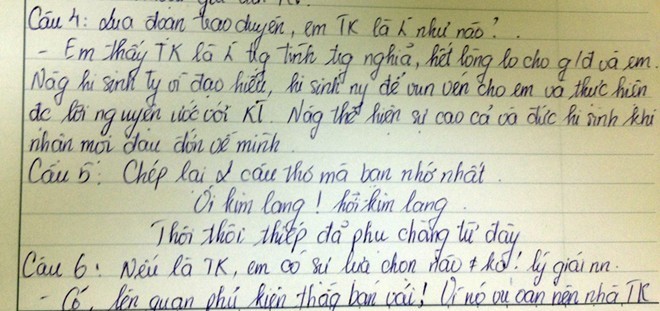 Câu 4: Qua đoạn trao duyên, em TK là ㅅ như nào?
- Em thấy TK là ㅅ tṛg tình tṛg nghĩa, hết lòng lo cho g/đ và em.
Nàg hi sinh ty vì đạo hiếu, hi sinh ny để vun vén cho em và thực hiện
đc lời nguyện ước với KT. Nàg thể hiện sự cao cả và đức hi sinh khi
nhận mọi đau đớn về mình.
Câu 5: Chép lại 2 câu thơ mà bạn nhớ nhất.
Ơi kim lang! hỡi kim lang
Thôi thôi thiếp đã phụ chàng từ đây
Câu 6: Nếu là TK, em có sự lựa chọn nào ≠ ko? lý giải nn.
- Có, lên quan phủ kiện thằg bán vải! Vì nó vu oan nên nhà TK